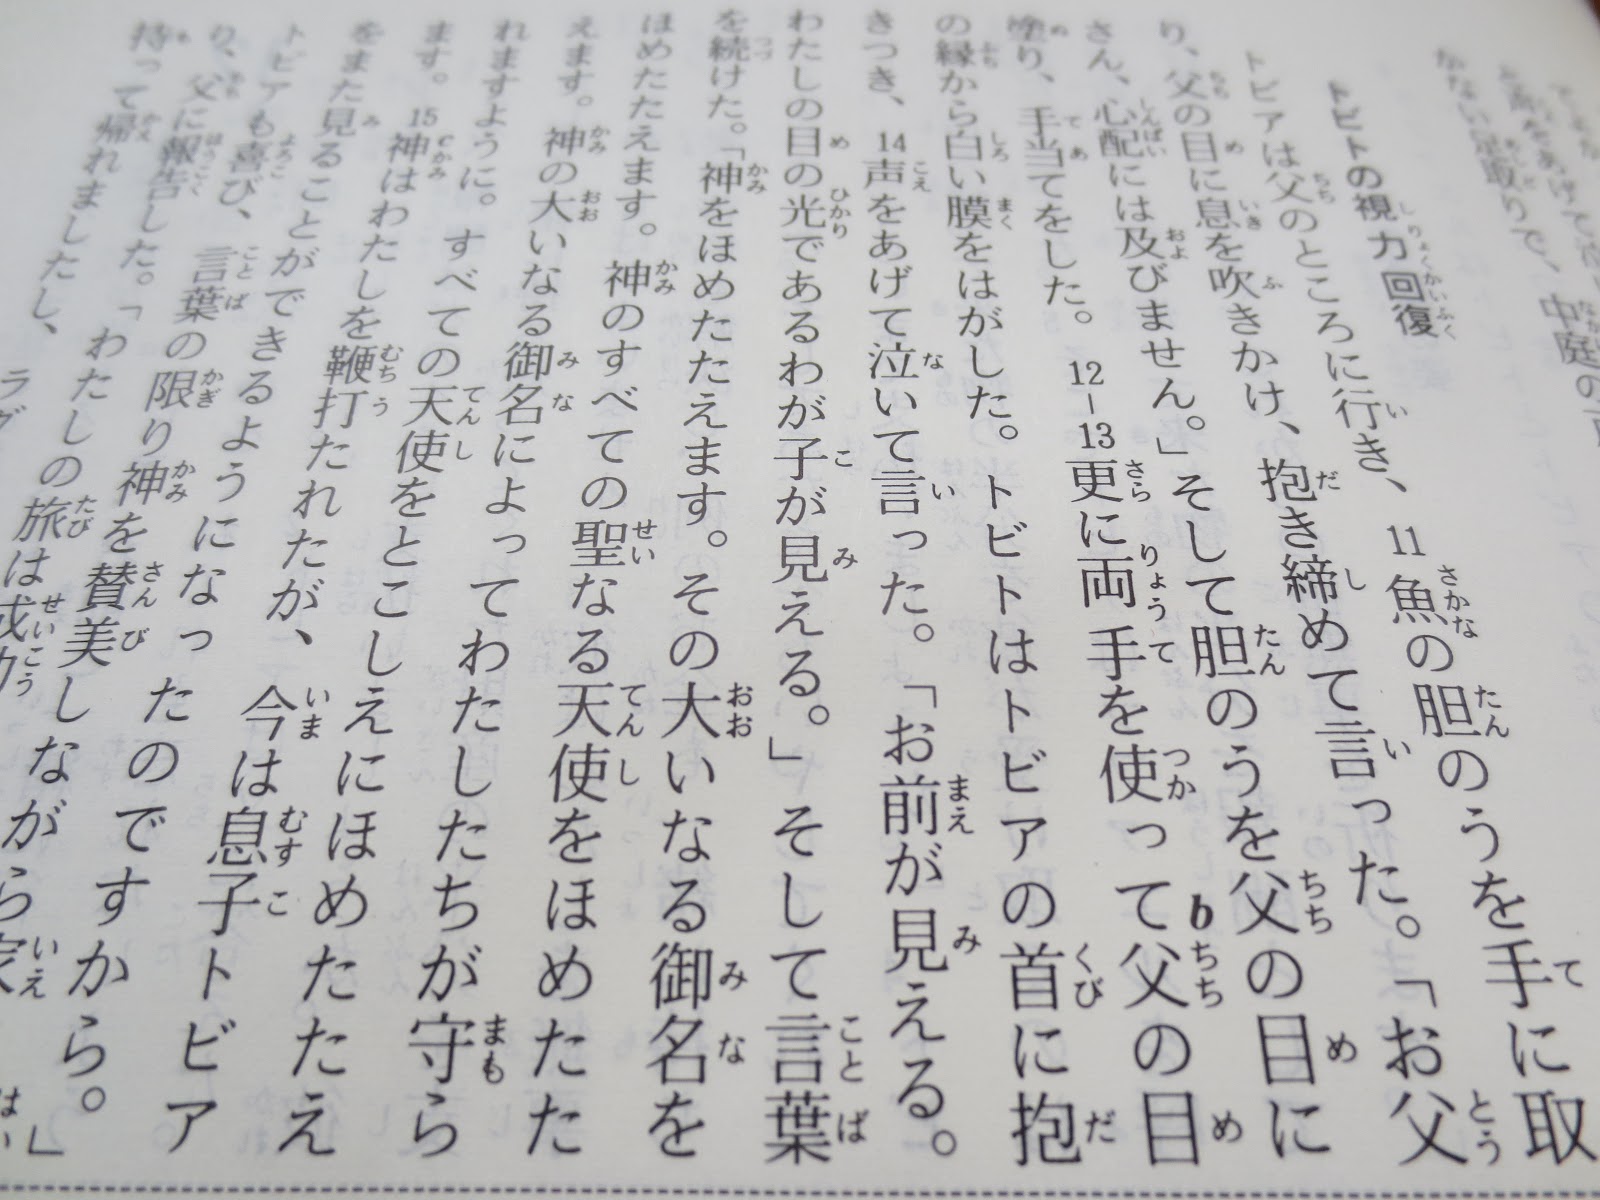 かない足取りで、中庭の
トビトの視力回復
トビアは父のところに行き、11魚の胆のうを手に取
り、父の目に息を吹きかけ、抱き締めて言った。「お父
さん、心配には及びません。」そして胆のうを父の目に
塗り、手当てをした。12-13更に両手を使ってb父の目
の縁から白い膜をはがした。トビトはトビアの首に抱
きつき、14声をあげて泣いて言った。「お前が見える。
わたしの目の光であるわが子が見える。」そして言葉
を続けた。「神をほめたたえます。その大いなる御名を
ほめたたえます。神のすべての聖なる天使をほめたた
えます。神の大いなる御名によってわたしたちが守ら
れますように。すべての天使をとこしえにほめたたえ
ます。15c神はわたしを鞭打たれたが、今は息子トビア
をまた見ることができるようになったのですから。」
トビアも喜び、言葉の限り神を賛美しながら家
り、父に報告した。「わたしの旅は成功
持って帰れましたし、ラグ